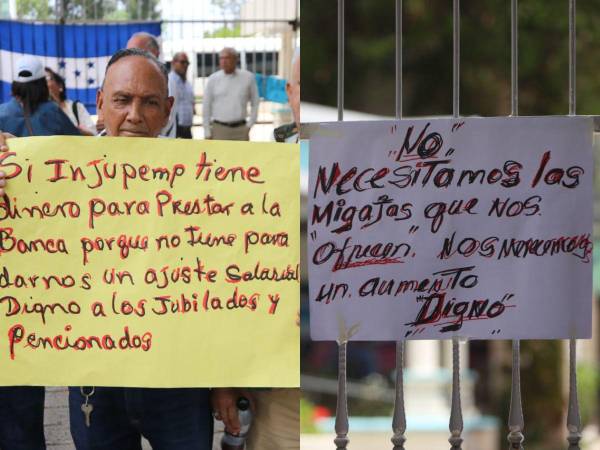 Si Injupemp tiene
dinero para Prestar a la
Banca porque no tiene para
darnos un ajuste Salarial
Digno a los Jubilados y
Pencionados
"NO"
Necesitamos las
Migajas que NOS.
"Ofrecen". NOS Merecemos
un. aumento
"Digno"